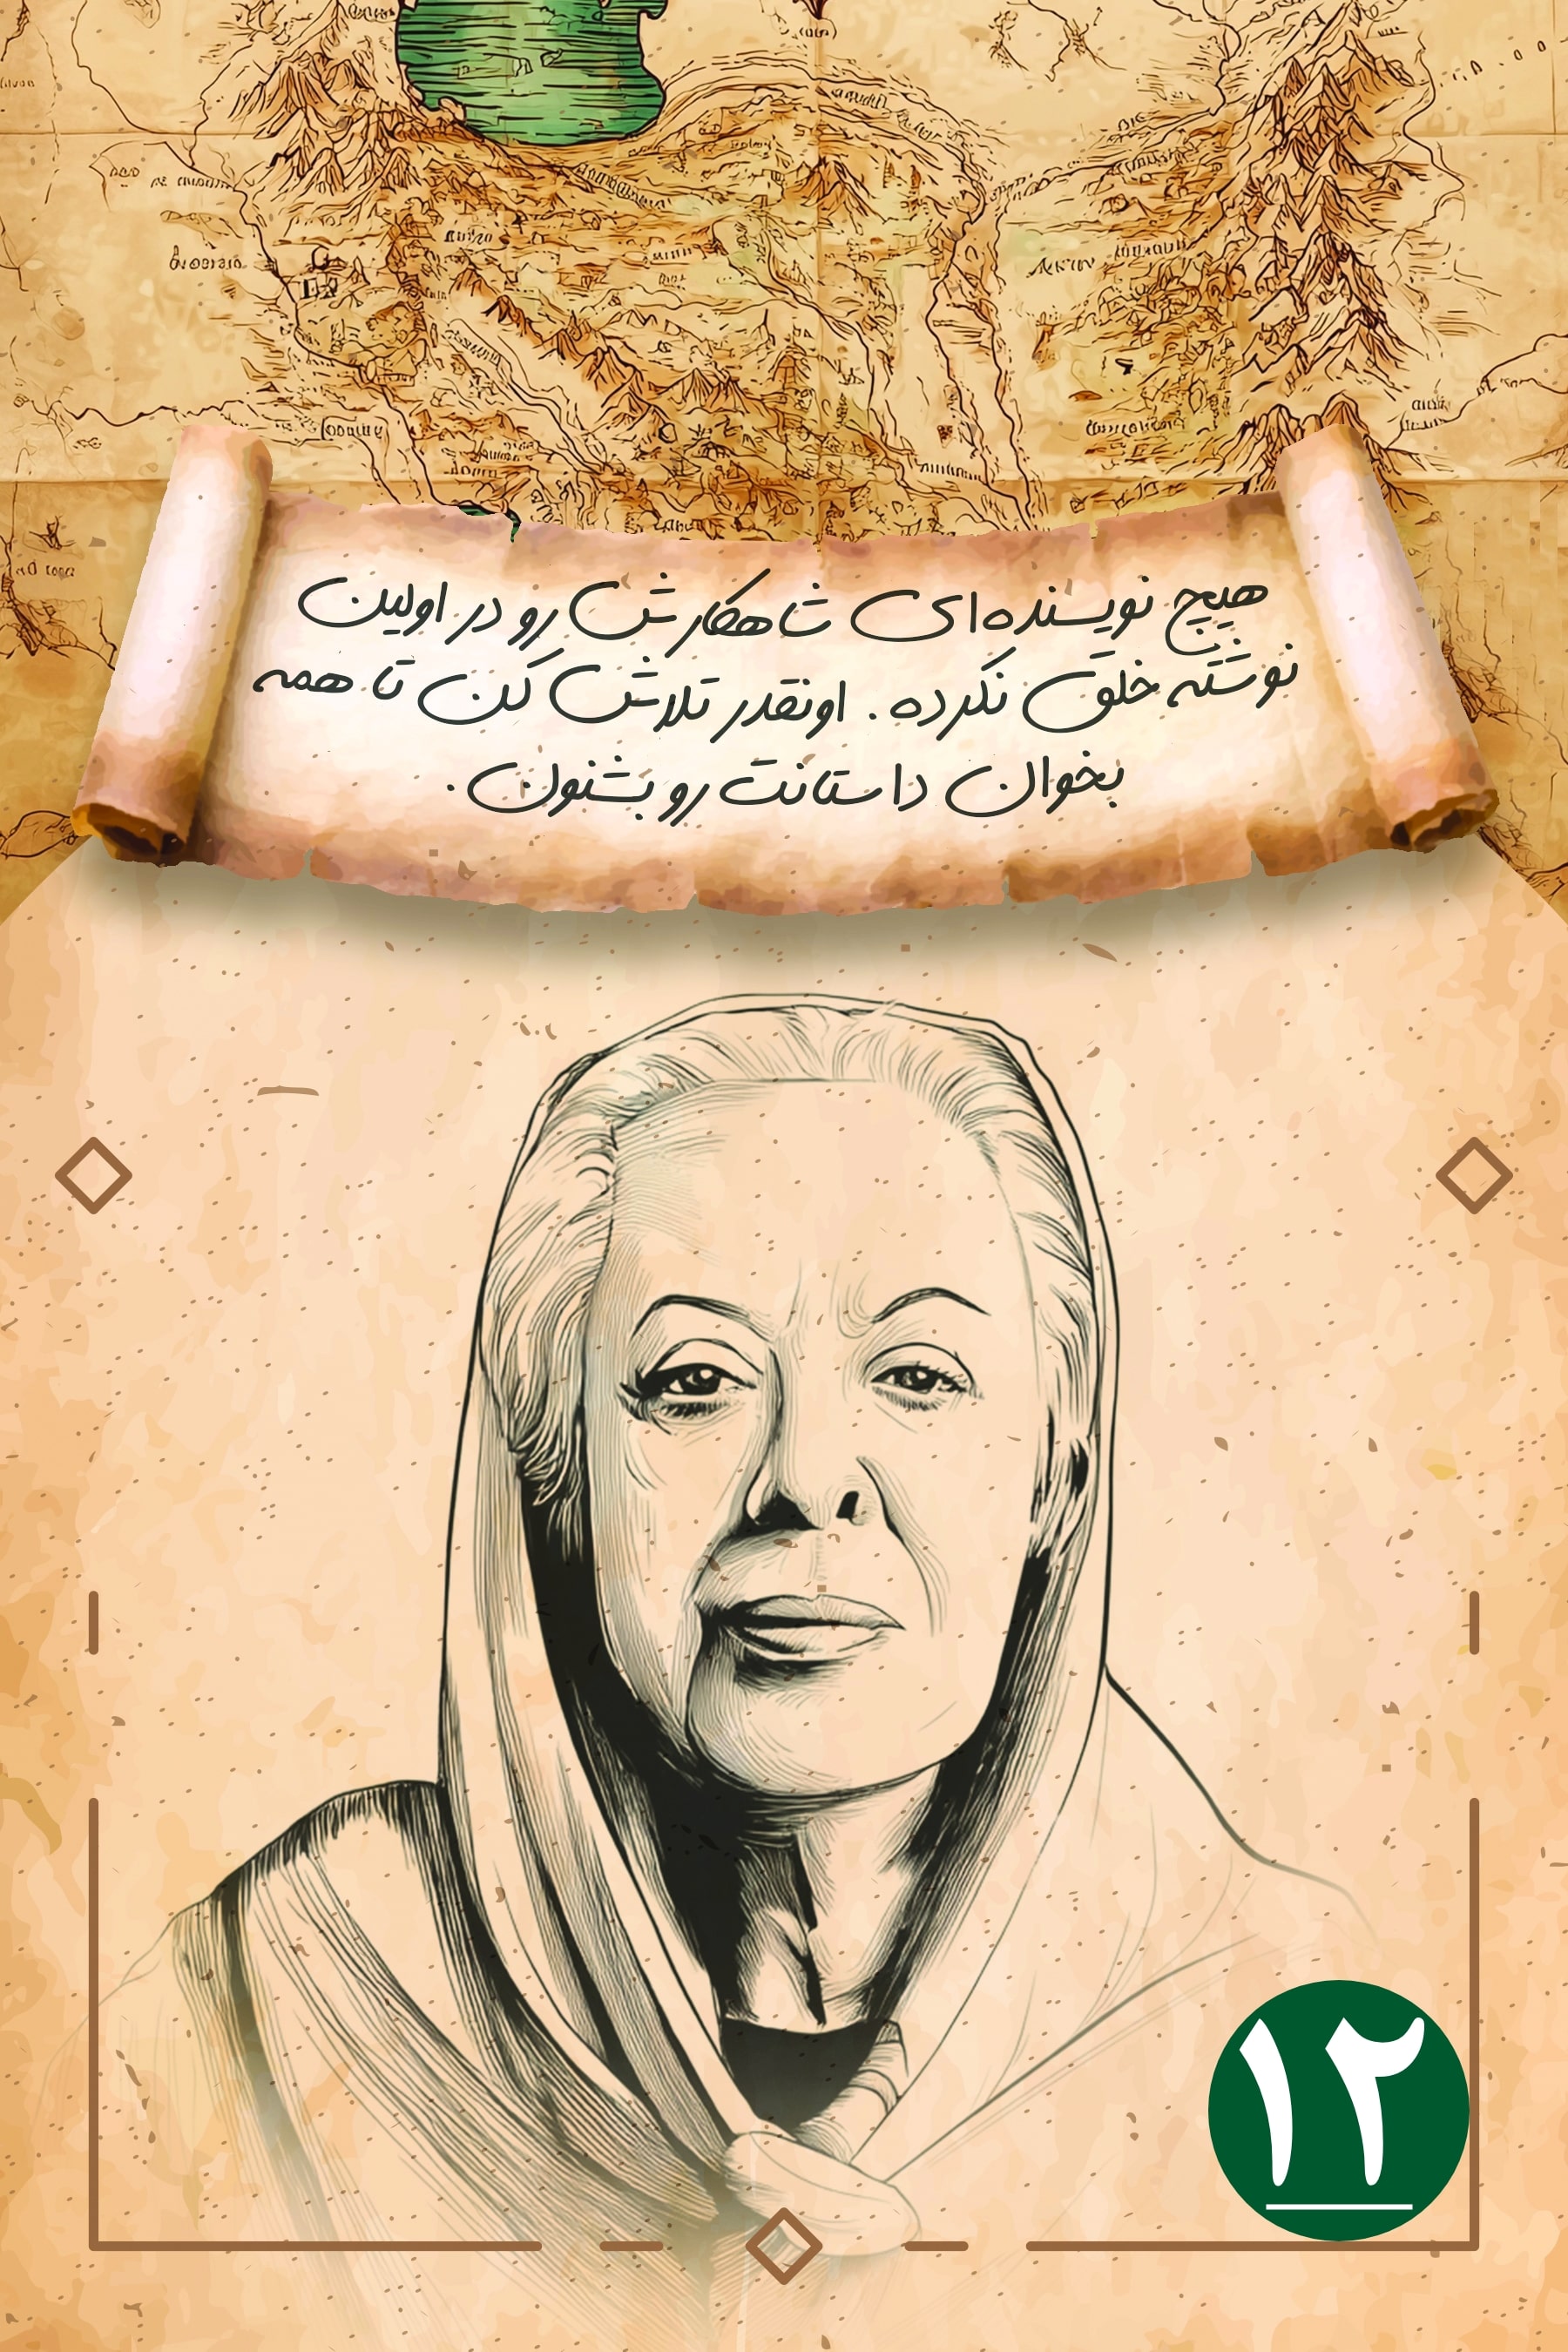 هیچ نویسنده‌ای شاهکارش رو در اولین
نوشته خلق نکرده. اونقدر تلاش کن تا همه
بخوان داستانت رو بشنون.
۱۲